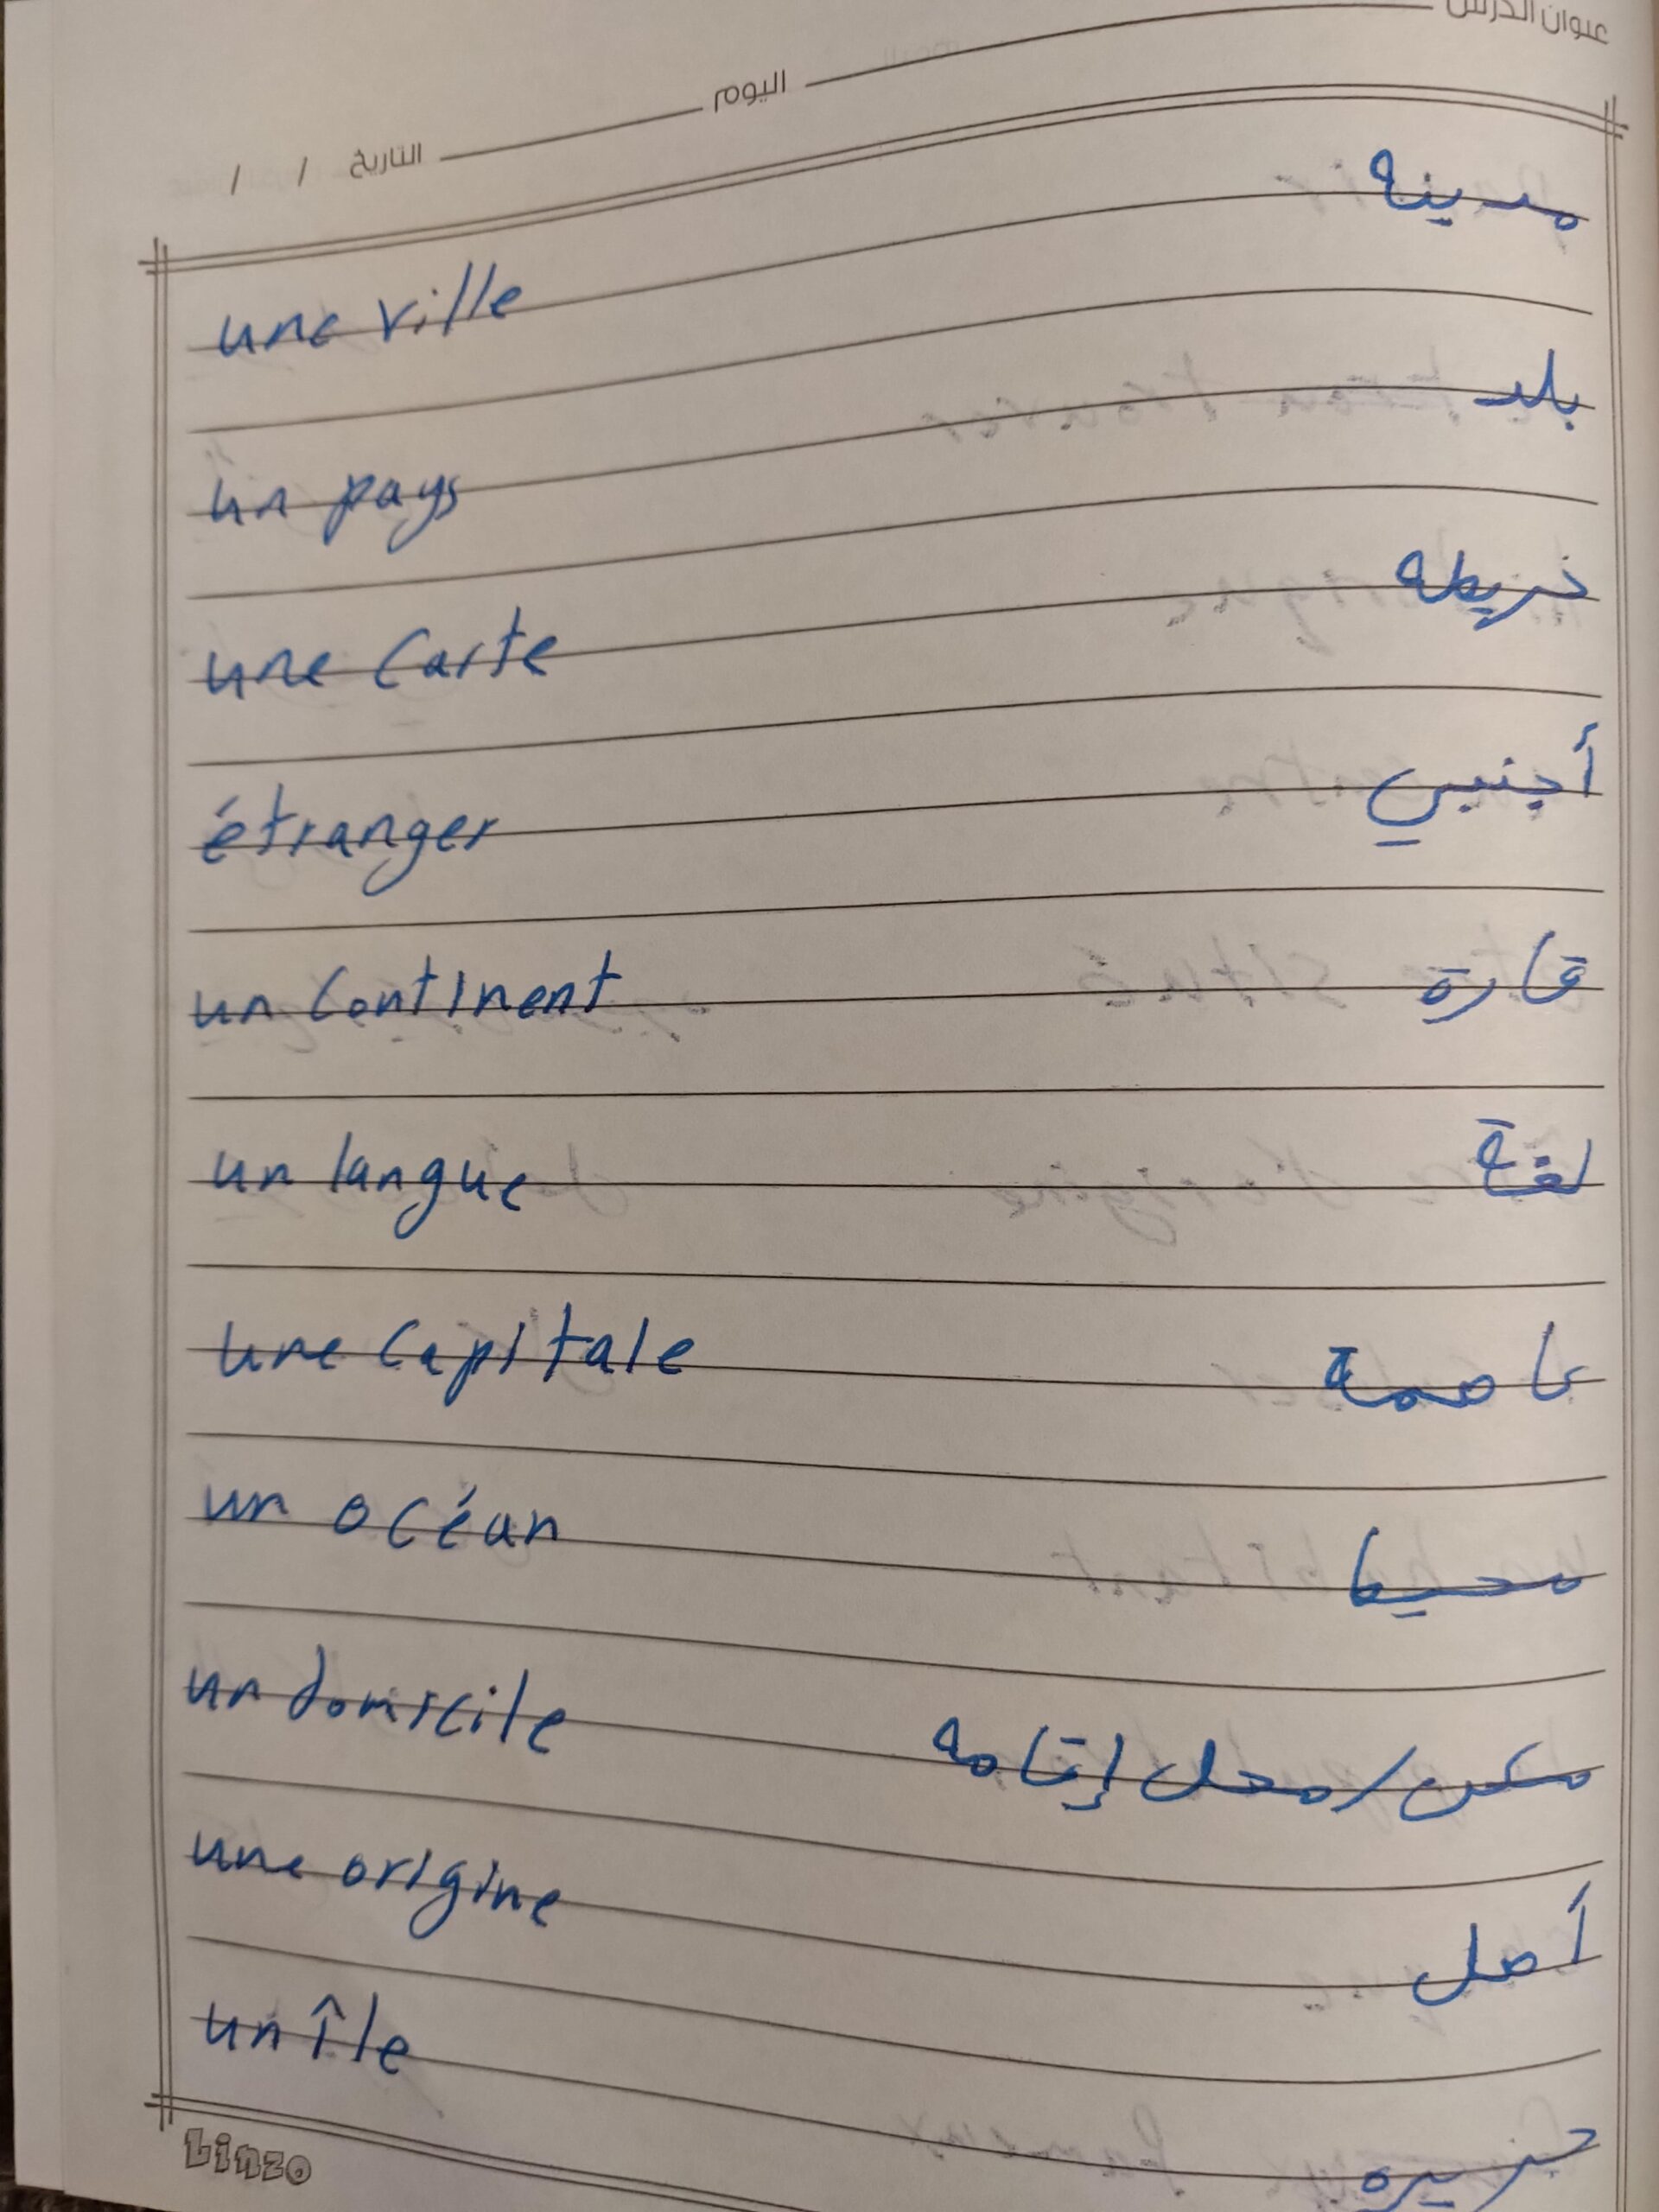 عنوان الدرس
اليوم
التاريخ / /
une ville مدينه
un pays بلد
une Carte خريطه
étranger أجنبي
un Continent قارة
un langue لغة
une Capitale عاصمة
un océan محيط
un domicile مسكن/محل إقامه
une origine أصل
un île جزيره
Linzo